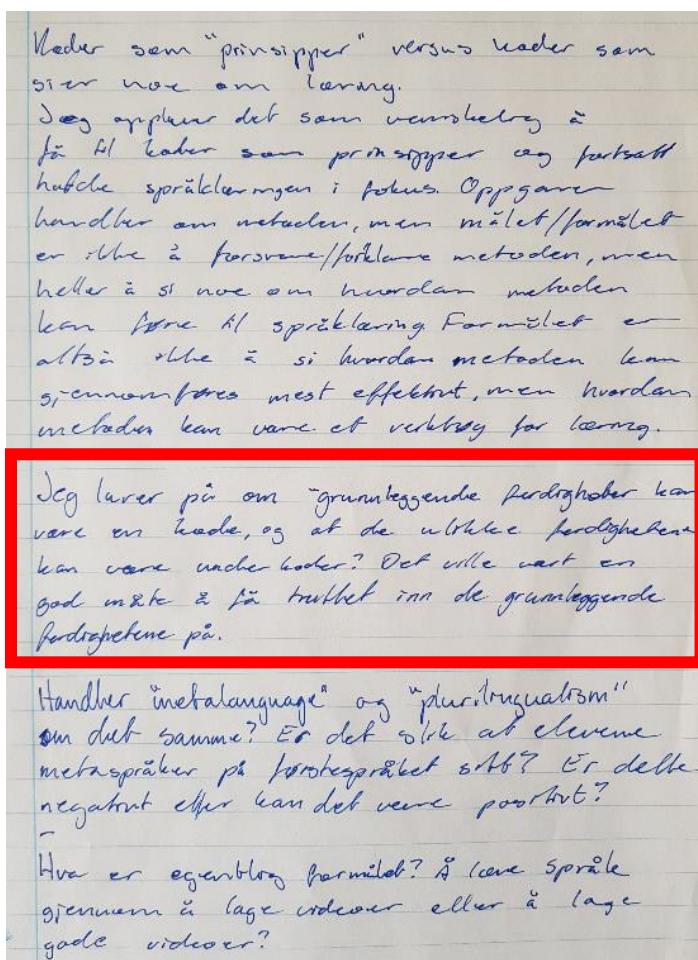 Koder som "prinsipper" versus koder som
sier noe om læring.
Jeg opplever det som vanskelig å
få til koder som prinsipper og fortsatt
holde språklæringen i fokus. Oppgaven
handler om metoden, men målet/formålet
er ikke å forsvare/forklare metoden, men
heller å si noe om hvordan metoden
kan føre til språklæring. Formålet er
altså ikke å si hvordan metoden kan
gjennomføres mest effektivt, men hvordan
metoden kan være et verktøy for læring.
Jeg lurer på om "grunnleggende ferdigheter kan
være en kode, og at de ulike ferdighetene
kan være underkoder? Det ville vært en
god måte å få trukket inn de grunnleggende
ferdighetene på.
Handler "metalanguage" og "plurilingualism"
om det samme? Er det slik at elevene
metaspråker på førstespråket sitt? Er dette
negativt eller kan det være positivt?
-
Hva er egentlig formålet? Å lære språk
gjennom å lage videoer eller å lage
gode videoer?